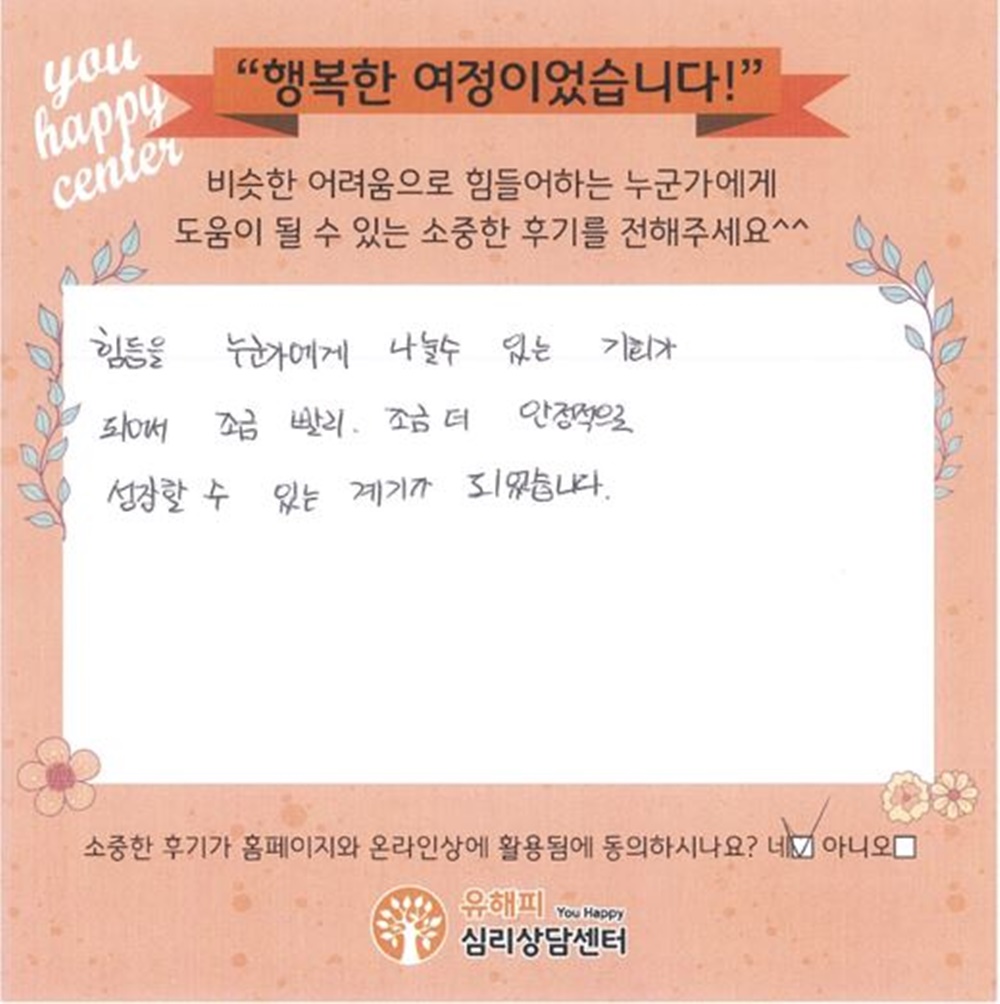 you
happy
center
“행복한 여정이었습니다!”
비슷한 어려움으로 힘들어하는 누군가에게
도움이 될 수 있는 소중한 후기를 전해주세요^^
힘듬을 누군가에게 나눌수 있는 기회가
되어서 조금 빨리. 조금 더 안정적으로
성장할 수 있는 계기가 되었습니다.
소중한 후기가 홈페이지와 온라인상에 활용됨에 동의하시나요? 네☑ 아니오☐
유해피 You Happy
심리상담센터